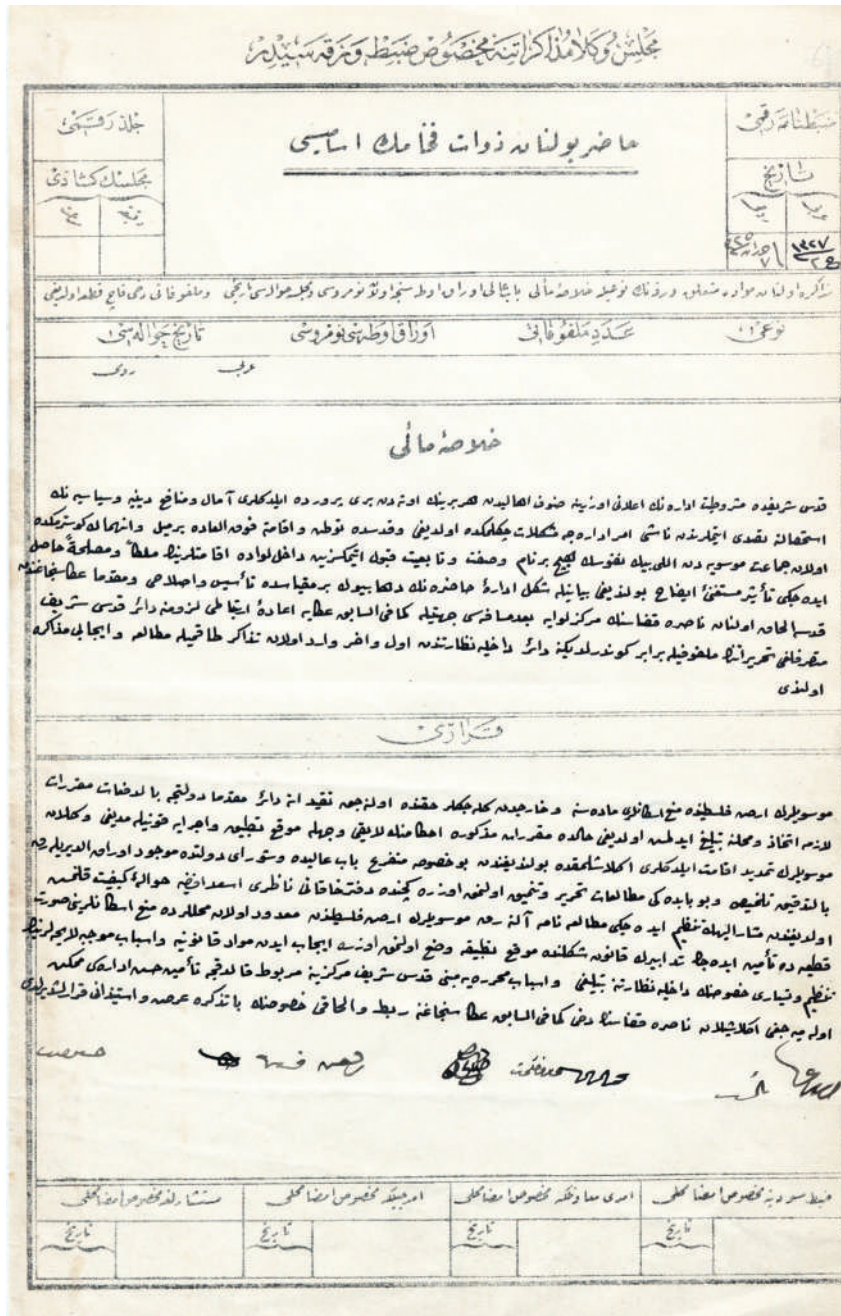 مجلس وكلا مذاكراتنه مخصوص ضبط ورقه سيدر
ضبطنامه رقمى
حاضر بولنان ذوات فخامك اساميسى
جلد رقمى
تاريخ
مجلسك كشادى
١٣٢٧
مذاكره اولنان مواده متعلق ورقنك نوعيله خلاصۀ مآلى باب عالى اوراق اوطه سنجه اولان نومروسى وتاريخى وملفوفاتى دخى قاچ قطعه اولديغى
نوعى
عدد ملفوفاتى
اوراق اوطه سى نومروسى
تاريخ حواله سى
عربى رومى
خلاصۀ مآلى
قدس شريفده مشروطيت اداره نك اعلانى اوزرينه صنوف اهاليدن هر برينك اوته دن برى پرورده ايلدكلرى آمال ومنافع دينيه وسياسيه نك
استحصالنه تصدى ايتملرندن ناشى امر اداره جه مشكلات چكلمكده اولديغى وقدسده توطن واقامته فوق العاده ميل وانهماك كوسترمكده
اولان جماعت موسويه دن اللى بيك نفوسك هيچ بر نام وصفت وتابعيت قبول ايتمكسزين داخل لواده اقامتلرينك ملكاً ومصلحةً حاصل
ايده جكى تأثير مستغنئ ايضاح بولنديغى بيانيله شكل ادارۀ حاضره نك دها بيوك بر مقياسده تأسيس واصلاحى ومقدما عكا سنجاغندن
قدسه الحاق اولنان ناصره قضاسنك مركز لوايه بعد مسافه سى جهتيله كما فى السابق عكايه اعادۀ ارتباطى لزومنه دائر قدس شريف
متصرفلغى تحريراتنك ملفوفيله برابر كوندرلديكنه دائر داخليه نظارتندن اول وآخر وارد اولان تذاكر طاقميله مطالعه وايجابى مذاكره
اولندى
قرارى
موسويلرك ارض فلسطينده منع اسكانلرى ماده سنه وخارجدن كله جكلر حقنده اولنه جق تقيداته دائر مقدما دولتجه بالدفعات مقررات
لازمه اتخاذ ومحلنه تبليغ ايدلمش اولديغى حالده مقررات مذكوره احكامنك لايقى وجهله موقع تطبيق واجرايه قونيله مديغى وكلان
موسويلرك تمديد اقامت ايلدكلرى اكلاشلمقده بولنديغندن بو خصوصه متفرع باب عاليده وشوراى دولتده موجود اوراق الديريله رق
بالتدقيق تلخيص وبو بابده كى مطالعات تحرير وتنميق اولنمق اوزره كچنده دفتر خاقانى ناظرى اسعد افندى يه حوالۀ كيفيت قلنمش
اولديغندن مشار اليهك تنظيم ايده جكى مطالعه نامه آلنه رق موسويلرك ارض فلسطيندن معدود اولان محللرده منع اسكانلرينى صورت
قطعيه ده تأمين ايده جك تدابيرك قانون شكلنده موقع تطبيقه وضع اولنمق اوزره ايجاب ايدن مواد قانونيه واسباب موجبه لايحه لرينك
تنظيم وتسيارى خصوصنك داخليه نظارتنه تبليغى واسباب محرره يه مبنى قدس شريف مركزينه مربوط قالدقجه تأمين حسن اداره سى ممكن
اوله ميه جغى اكلاشيلان ناصره قضاسنك دخى كما فى السابق عكا سنجاغنه ربط والحاقى خصوصنك با تذكره عرض واستيذانى قرارلشديرلدى
ضبط مسودينه مخصوص امضا محلى
آمدى معاوننه مخصوص امضا محلى
آمدجيلكه مخصوص امضا محلى
مستشارلغه مخصوص امضا محلى
تاريخ
تاريخ
تاريخ
تاريخ